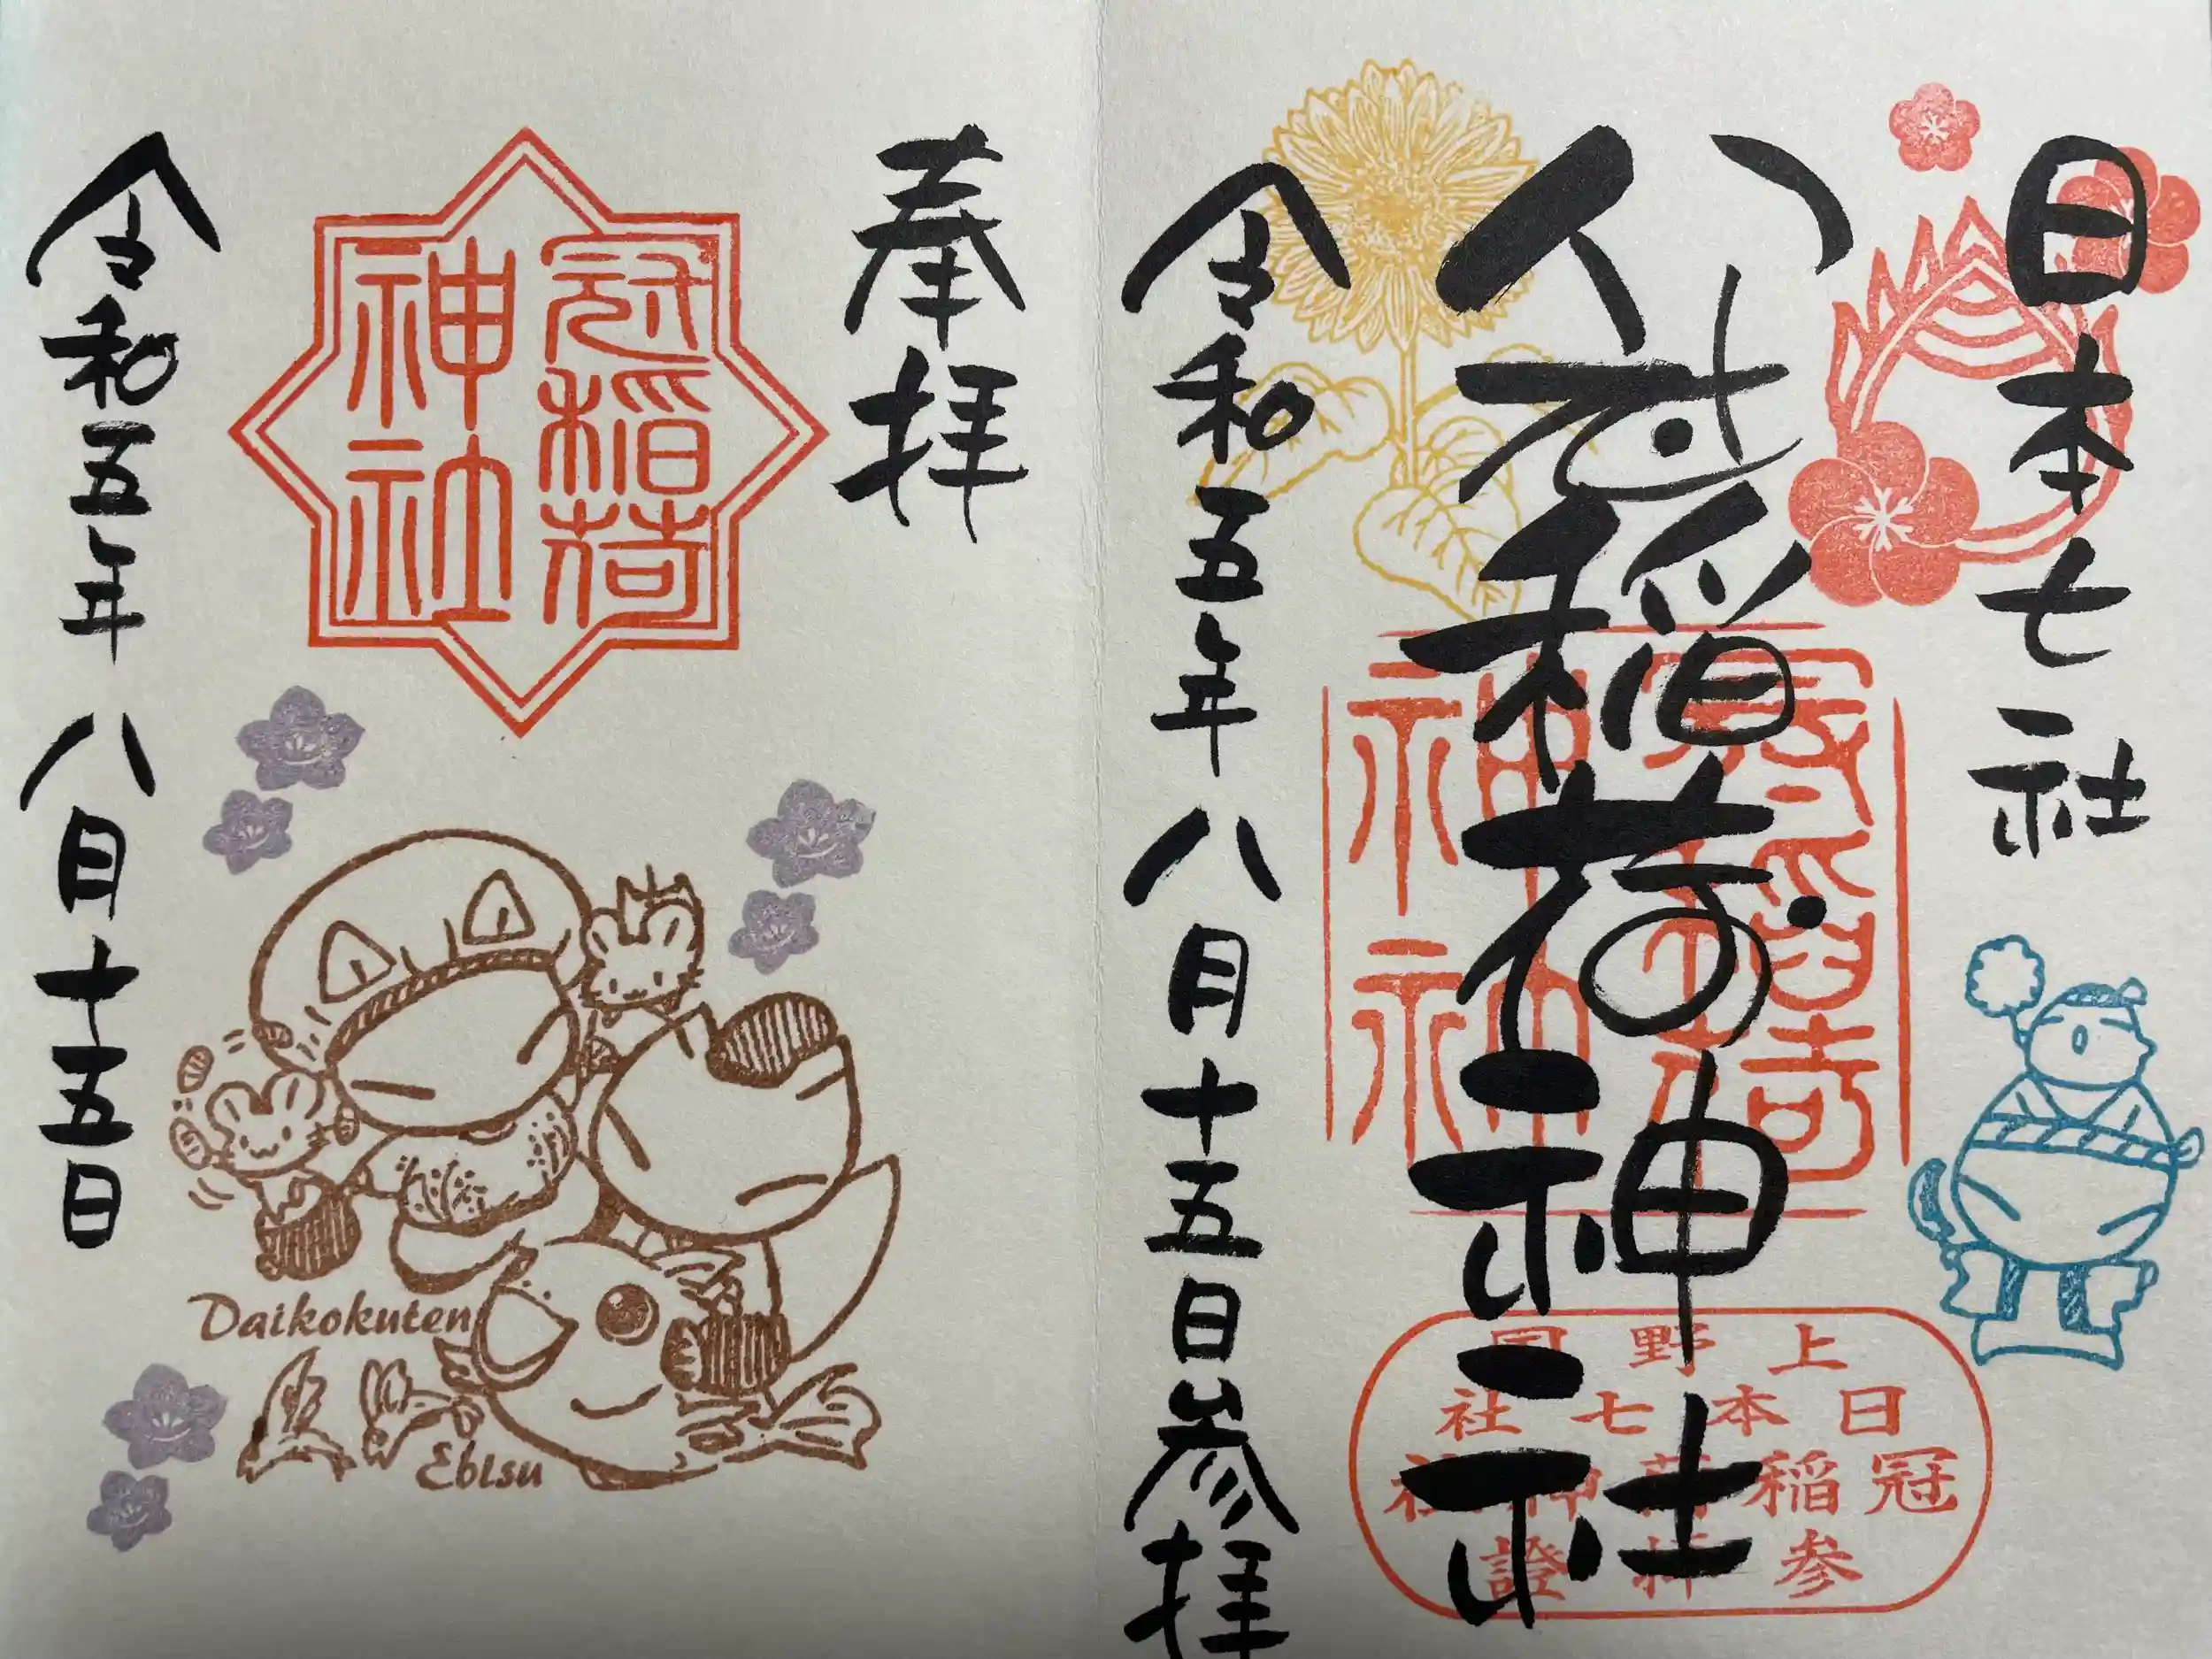 日本七社
冠稲荷神社
令和五年八月十五日参拝
冠稲荷
神社
上野國
日本七社
冠稲荷神社
参拝證
奉拝
冠稲荷
神社
令和五年八月十五日
Daikokuten
Ebisu